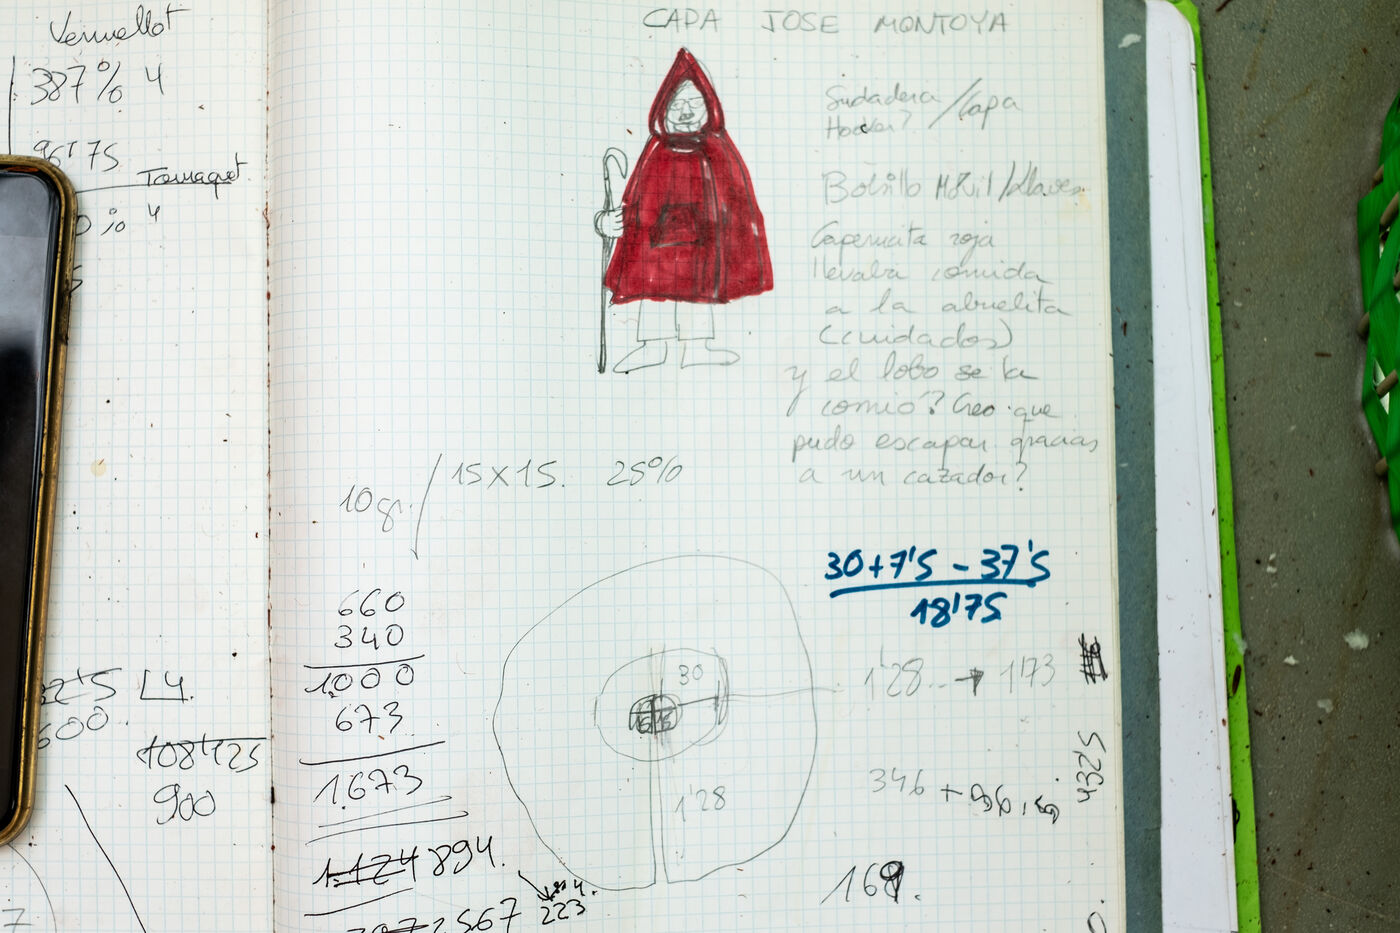 Vermellot
387% 4
96'75
Tomaquet
4
CAPA JOSE MONTOYA
Sudadera / Capa
Bolsillo Móvil/Llaves
Caperucita roja
llevaba comida
a la abuelita
(cuidados)
y el lobo se la
comió? Creo que
pudo escapar gracias
a un cazador?
10gr. / 15x15. 25%
30+7'5 - 37'5
18'75
660
340
1.000
673
1.673
894.
223
2567
30
15 15
1'28
1'28.. → 1'73
346 + 96,
4325
169.
4.
600
108'125
900
7